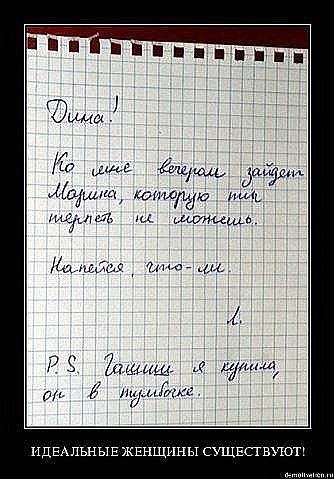 Дима!
Ко мне вечером зайдет
Марина, которую ты
терпеть не можешь.
Напейся, что-ли.
Л.
P.S. Гашиш я купила,
он в тумбочке.
ИДЕАЛЬНЫЕ ЖЕНЩИНЫ СУЩЕСТВУЮТ!
demotivation.ru